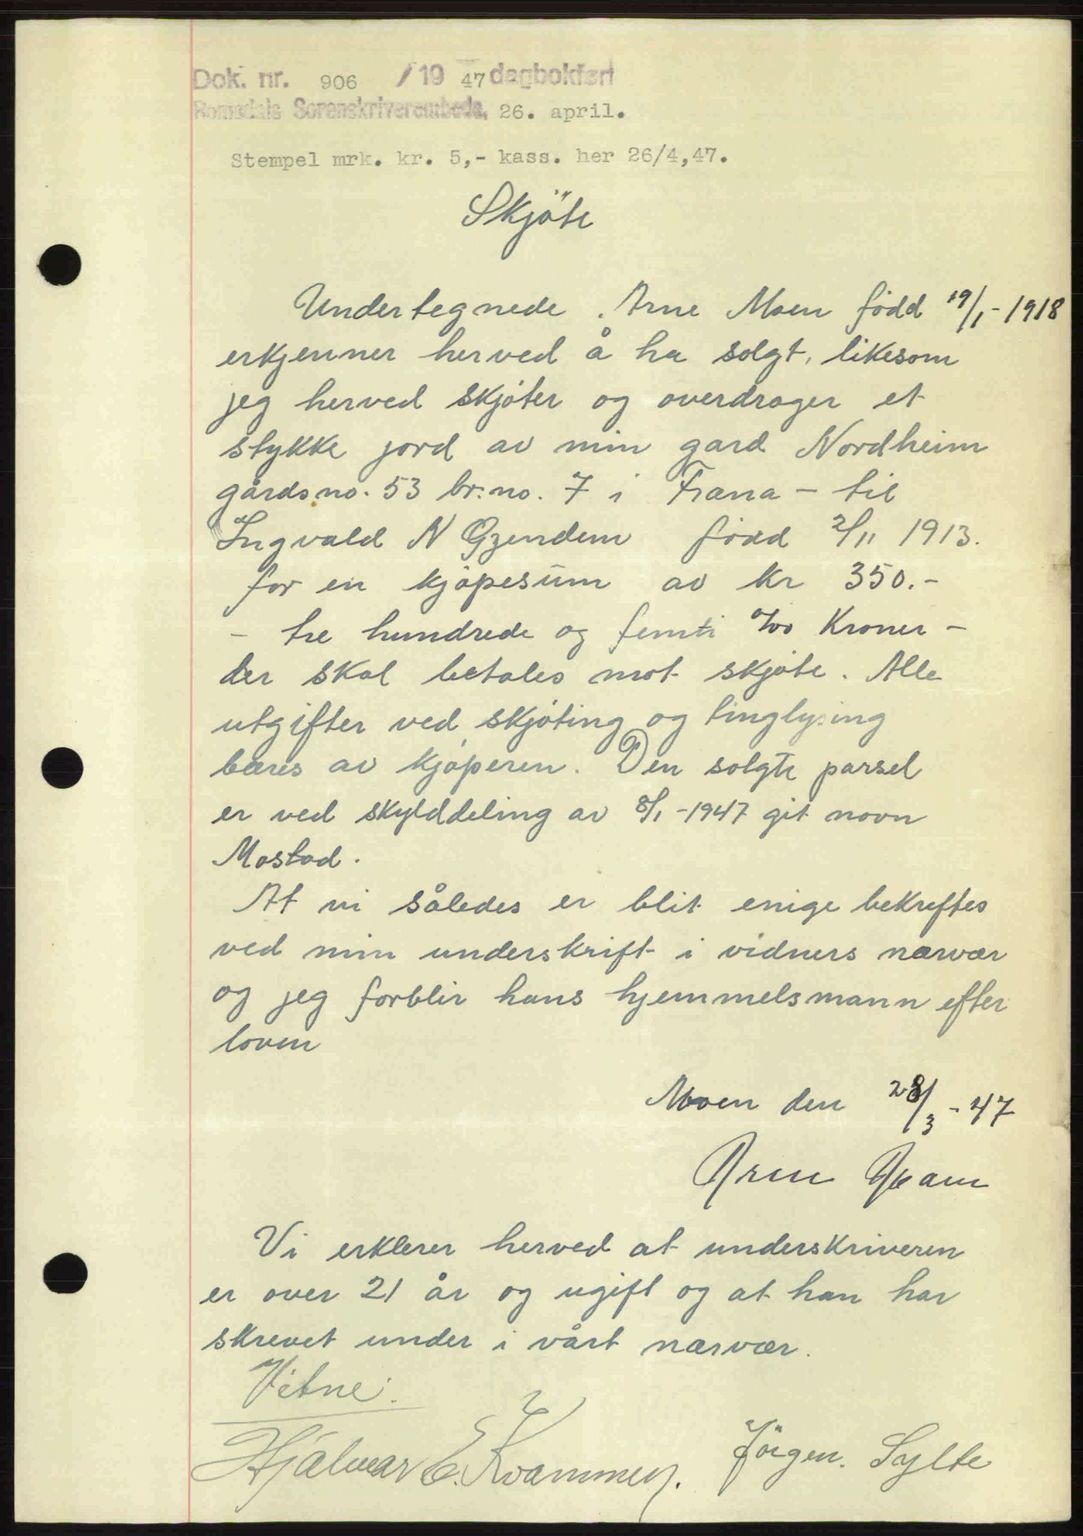 Dok. nr. 906 /1947 dagbokført
Romsdals Sorenskriverembede, 26. april.
Stempel mrk. kr. 5,- kass. her 26/4,47.
Skjöte
Undertegnede Arne Moen född 19/1-1918
erkjenner herved å ha solgt, likesom
jeg herved skjöter og overdrager et
stykke jord av min gard Nordheim
gårdsno. 53 br.no. 7 i Fræna - til
Ingvald N Gjendem född 2/11 1913.
for en kjöpesum av kr 350.-
- tre hundrede og femti 0/00 Kroner -
der skal betales mot skjöte. Alle
utgifter ved skjöting og tinglysing
bæres av kjöperen. Den solgte parsel
er ved skylddeling av 8/1-1947 git navn
Mostad.
At vi således er blit enige bekreftes
ved min underskrift i vidners nærvær
og jeg forblir hans hjemmelsmann efter
loven
Moen den 28/3-47
Arne Moen
Vi erklerer herved at underskriveren
er over 21 år og ugift og at han har
skrevet under i vårt nærvær.
Vitne:
Hjalmar E. Kvammen. Jörgen. Sylte